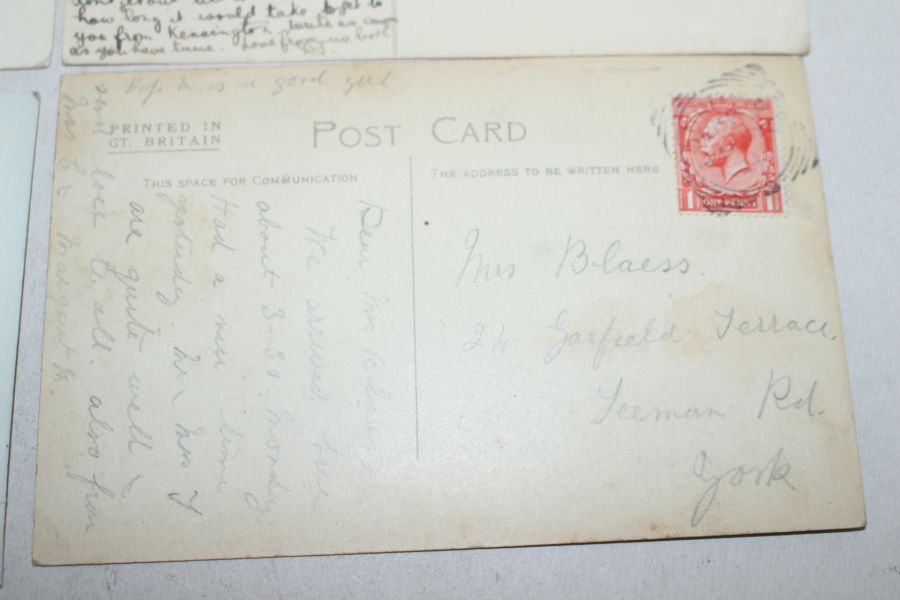 how long it would take to get to
you from Kensington. Write as soon
as you have time. Love from us both
Hope is a good girl
PRINTED IN
GT. BRITAIN
POST CARD
THIS SPACE FOR COMMUNICATION
THE ADDRESS TO BE WRITTEN HERE
1 ONE PENNY 1
Dear Mrs Blaess
We arrived here
about 3-30. Monday
Had a nice time
yesterday. Mr Mrs Y
are quite well &
send love to all. also from
Mrs Margaret
Mrs Blaess.
24 Garfield Terrace.
Leeman Rd.
York